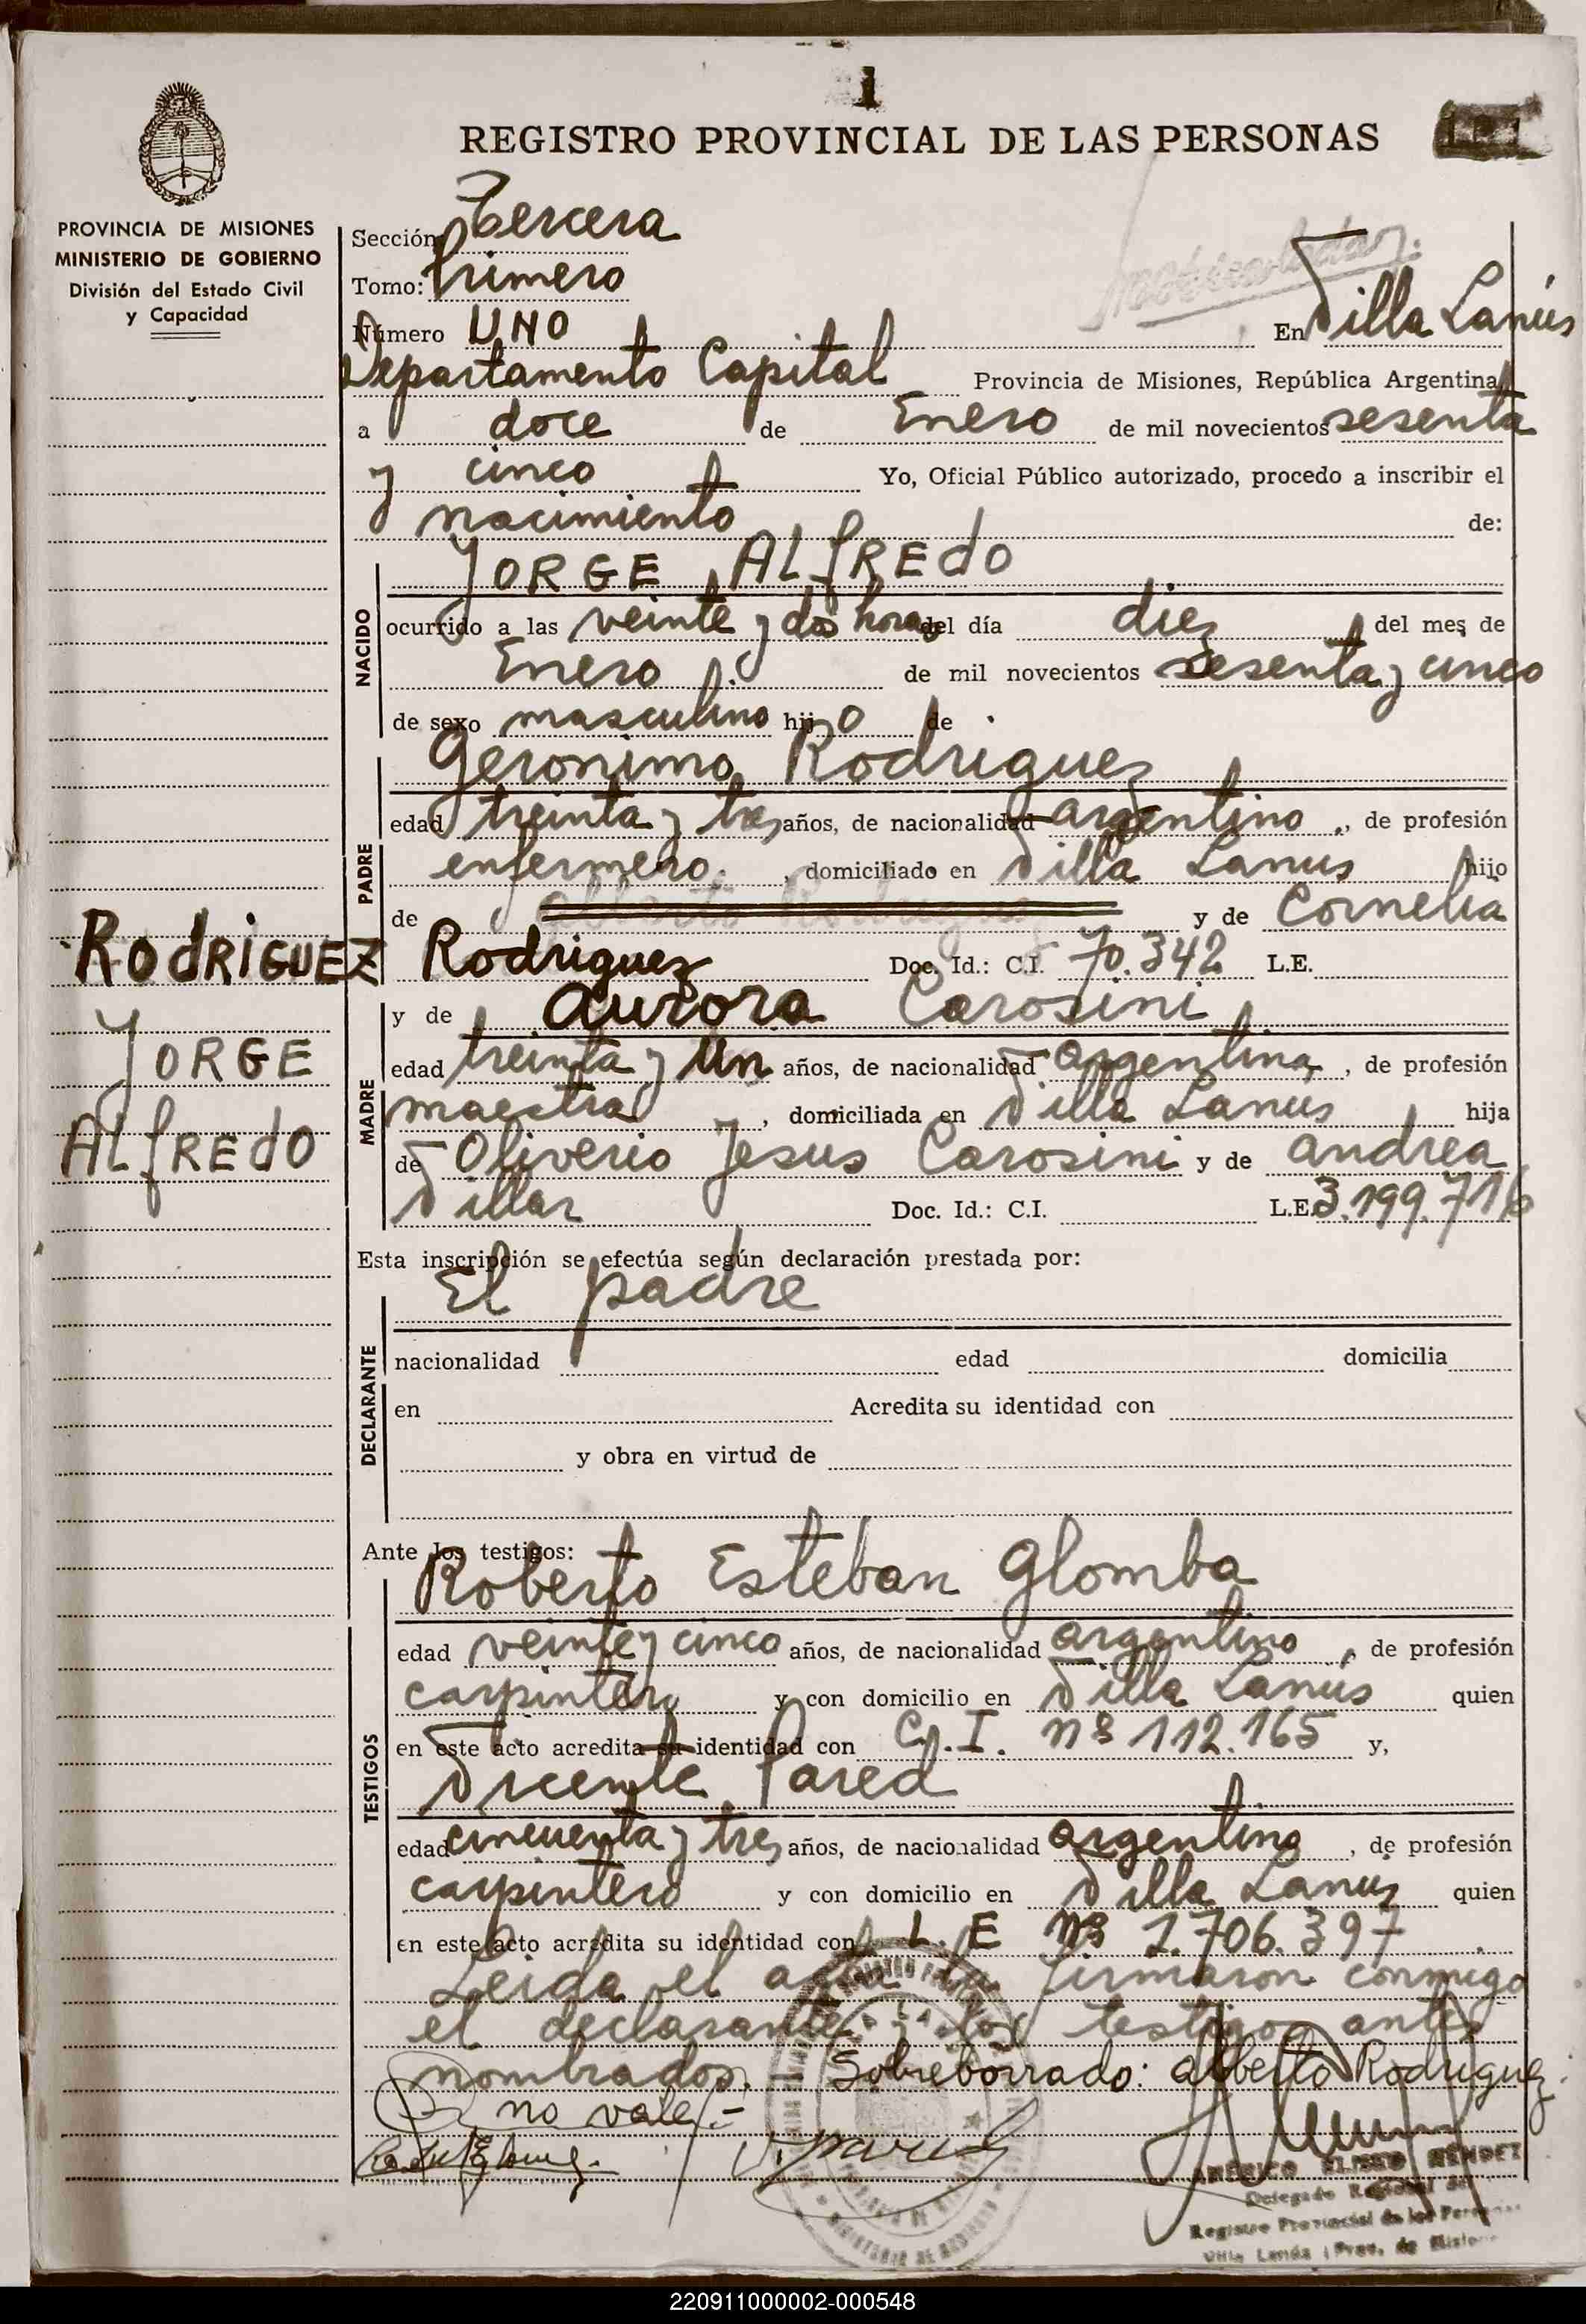 1
REGISTRO PROVINCIAL DE LAS PERSONAS
PROVINCIA DE MISIONES
MINISTERIO DE GOBIERNO
División del Estado Civil
y Capacidad
Sección Tercera
Tomo: Primero
Número UNO En Villa Lanús
Departamento Capital Provincia de Misiones, República Argentina
a doce de Enero de mil novecientos sesenta
y cinco Yo, Oficial Público autorizado, procedo a inscribir el
nacimiento de:
NACIDO
JORGE ALfREdO
ocurrido a las veinte y dos horas del día diez del mes de
Enero de mil novecientos sesenta y cinco
de sexo masculino hijo de
PADRE
Geronimo Rodriguez
edad treinta y tres años, de nacionalidad argentino, de profesión
enfermero, domiciliado en Villa Lanus hijo
de Alberto Rodriguez y de Cornelia
Rodriguez Doc. Id.: C.I. 70.342 L.E.
RodRiGUEZ
JORGE
ALfREdO
MADRE
y de Aurora Carosini
edad treinta y un años, de nacionalidad argentina, de profesión
maestra, domiciliada en Villa Lanus, hija
de Oliverio Jesus Carosini y de Andrea
Villar Doc. Id.: C.I. L.E. 3.199.716
Esta inscripción se efectúa según declaración prestada por:
El padre
DECLARANTE
nacionalidad edad domicilia
en Acredita su identidad con
y obra en virtud de
Ante los testigos:
Roberto Esteban Glomba
TESTIGOS
edad veinte y cinco años, de nacionalidad argentino, de profesión
carpintero y con domicilio en Villa Lanús quien
en este acto acredita su identidad con C.I. nº 112.165 y,
Vicente Pared
edad cincuenta y tres años, de nacionalidad argentino, de profesión
carpintero y con domicilio en Villa Lanus quien
en este acto acredita su identidad con L.E nº 1.706.397
Leida el acta la firmaron conmigo
el declarante y los testigos antes
nombrados. Sobreborrado: Alberto Rodriguez.
no vale.-
AMERICO ELISEO MENDEZ
Delegado Regional del
Registro Provincial de las Personas
Villa Lanús (Prov. de Misiones
220911000002-000548